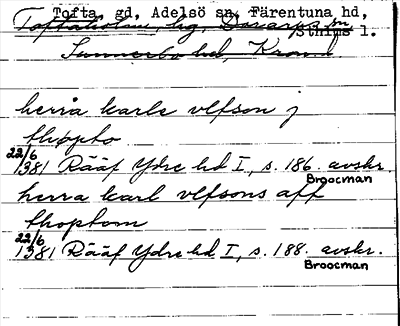 Tofta, gd, Adelsö sn, Färentuna hd,
Toftaholm, hg, Dörarps sn
Sthlms l.
Sunnerbo hd, Kronob
herra karls vlfson j
thopto
22/6
1381 Rääf Ydre hd I, s. 186. avskr.
Broocman
herra karl vlfsons aff
thoptom
22/6
1381 Rääf Ydre hd I, s. 188. avskr.
Broocman